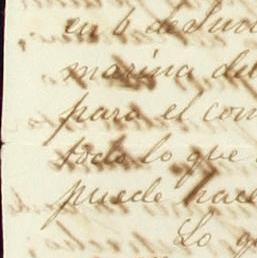 en 6 de Jun
marina de
para el com
todo lo que
puede hace
Lo q